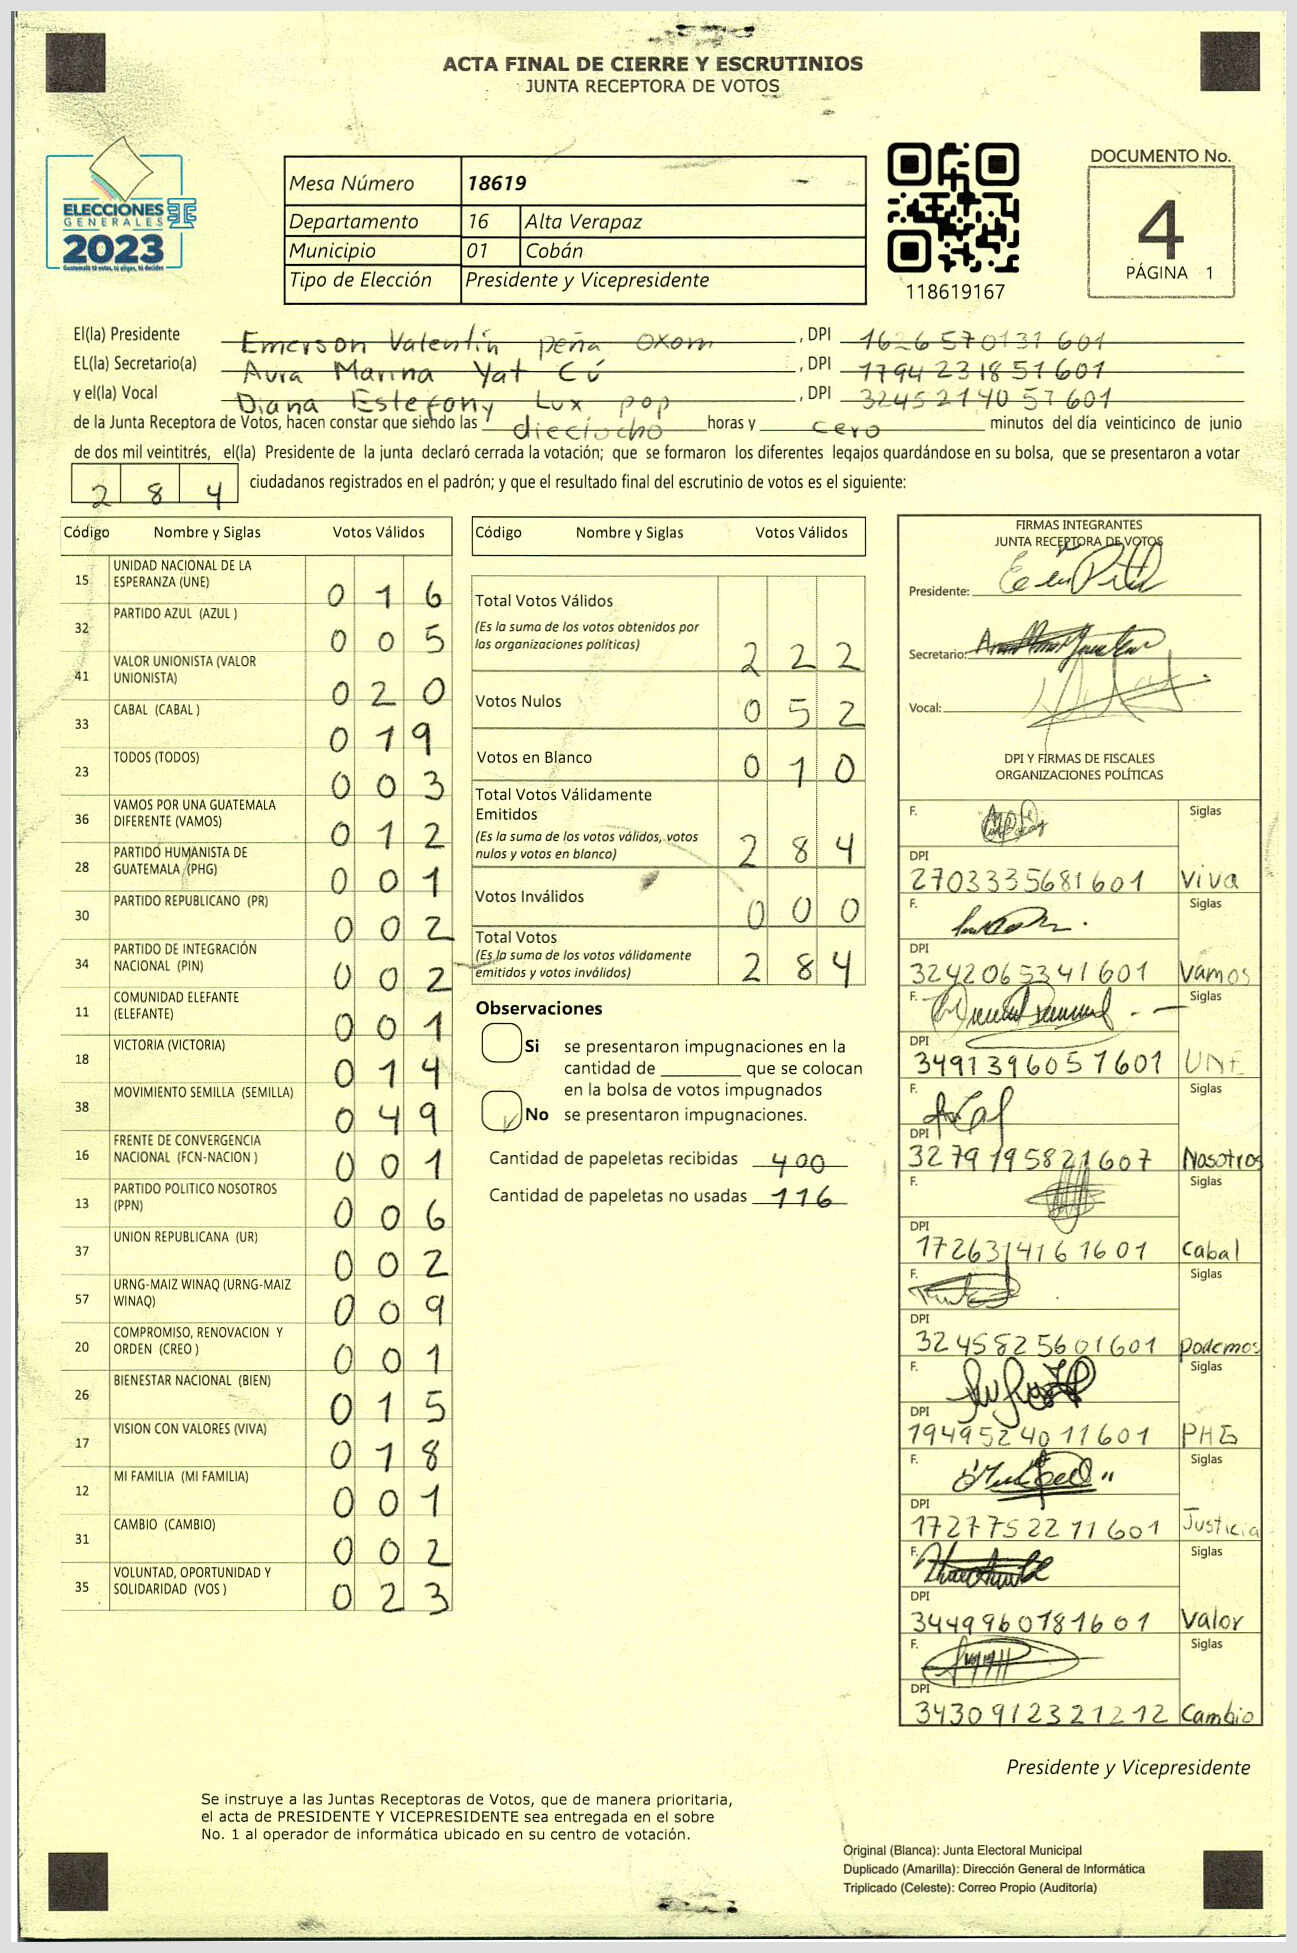 ACTA FINAL DE CIERRE Y ESCRUTINIOS
JUNTA RECEPTORA DE VOTOS
ELECCIONES
GENERALES
2023
Guatemala tú votas, tú eliges, tú decides
Mesa Número 18619
Departamento 16 Alta Verapaz
Municipio 01 Cobán
Tipo de Elección Presidente y Vicepresidente
118619167
DOCUMENTO No.
4
PÁGINA 1
El(la) Presidente Emerson Valentín peña Oxom, DPI 1626570131601
EL(la) Secretario(a) Aura Marina Yat Cú, DPI 1794231851601
y el(la) Vocal Diana Estefony Lux pop, DPI 3245214057601
de la Junta Receptora de Votos, hacen constar que siendo las dieciocho horas y cero minutos del día veinticinco de junio
de dos mil veintitrés, el(la) Presidente de la junta declaró cerrada la votación; que se formaron los diferentes legajos guardándose en su bolsa, que se presentaron a votar
284 ciudadanos registrados en el padrón; y que el resultado final del escrutinio de votos es el siguiente:
Código Nombre y Siglas Votos Válidos
15 UNIDAD NACIONAL DE LA ESPERANZA (UNE) 016
32 PARTIDO AZUL (AZUL ) 005
41 VALOR UNIONISTA (VALOR UNIONISTA) 020
33 CABAL (CABAL ) 019
23 TODOS (TODOS) 003
36 VAMOS POR UNA GUATEMALA DIFERENTE (VAMOS) 012
28 PARTIDO HUMANISTA DE GUATEMALA (PHG) 001
30 PARTIDO REPUBLICANO (PR) 002
34 PARTIDO DE INTEGRACIÓN NACIONAL (PIN) 002
11 COMUNIDAD ELEFANTE (ELEFANTE) 001
18 VICTORIA (VICTORIA) 014
38 MOVIMIENTO SEMILLA (SEMILLA) 049
16 FRENTE DE CONVERGENCIA NACIONAL (FCN-NACION ) 001
13 PARTIDO POLITICO NOSOTROS (PPN) 006
37 UNION REPUBLICANA (UR) 002
57 URNG-MAIZ WINAQ (URNG-MAIZ WINAQ) 009
20 COMPROMISO, RENOVACION Y ORDEN (CREO ) 001
26 BIENESTAR NACIONAL (BIEN) 015
17 VISION CON VALORES (VIVA) 018
12 MI FAMILIA (MI FAMILIA) 001
31 CAMBIO (CAMBIO) 002
35 VOLUNTAD, OPORTUNIDAD Y SOLIDARIDAD (VOS ) 023
Código Nombre y Siglas Votos Válidos
Total Votos Válidos
(Es la suma de los votos obtenidos por
las organizaciones políticas) 222
Votos Nulos 052
Votos en Blanco 010
Total Votos Válidamente
Emitidos
(Es la suma de los votos válidos, votos
nulos y votos en blanco) 284
Votos Inválidos 000
Total Votos
(Es la suma de los votos válidamente
emitidos y votos inválidos) 284
Observaciones
Si se presentaron impugnaciones en la
cantidad de ________ que se colocan
en la bolsa de votos impugnados
No se presentaron impugnaciones.
Cantidad de papeletas recibidas 400
Cantidad de papeletas no usadas 116
FIRMAS INTEGRANTES
JUNTA RECEPTORA DE VOTOS
Presidente:
Secretario:
Vocal:
DPI Y FIRMAS DE FISCALES
ORGANIZACIONES POLÍTICAS
F. Siglas
DPI
2703335681601 Viva
F. Siglas
DPI
3242065341601 Vamos
F. Siglas
DPI
3491396051601 UNE
F. Siglas
DPI
3279195821607 Nosotros
F. Siglas
DPI
1726314161601 Cabal
F. Siglas
DPI
3245825601601 podemos
F. Siglas
DPI
1949524011601 PHG
F. Siglas
DPI
1727752211601 Justicia
F. Siglas
DPI
3449960781601 Valor
F. Siglas
DPI
3430912321212 Cambio
Presidente y Vicepresidente
Se instruye a las Juntas Receptoras de Votos, que de manera prioritaria,
el acta de PRESIDENTE Y VICEPRESIDENTE sea entregada en el sobre
No. 1 al operador de informática ubicado en su centro de votación.
Original (Blanca): Junta Electoral Municipal
Duplicado (Amarilla): Dirección General de Informática
Triplicado (Celeste): Correo Propio (Auditoría)